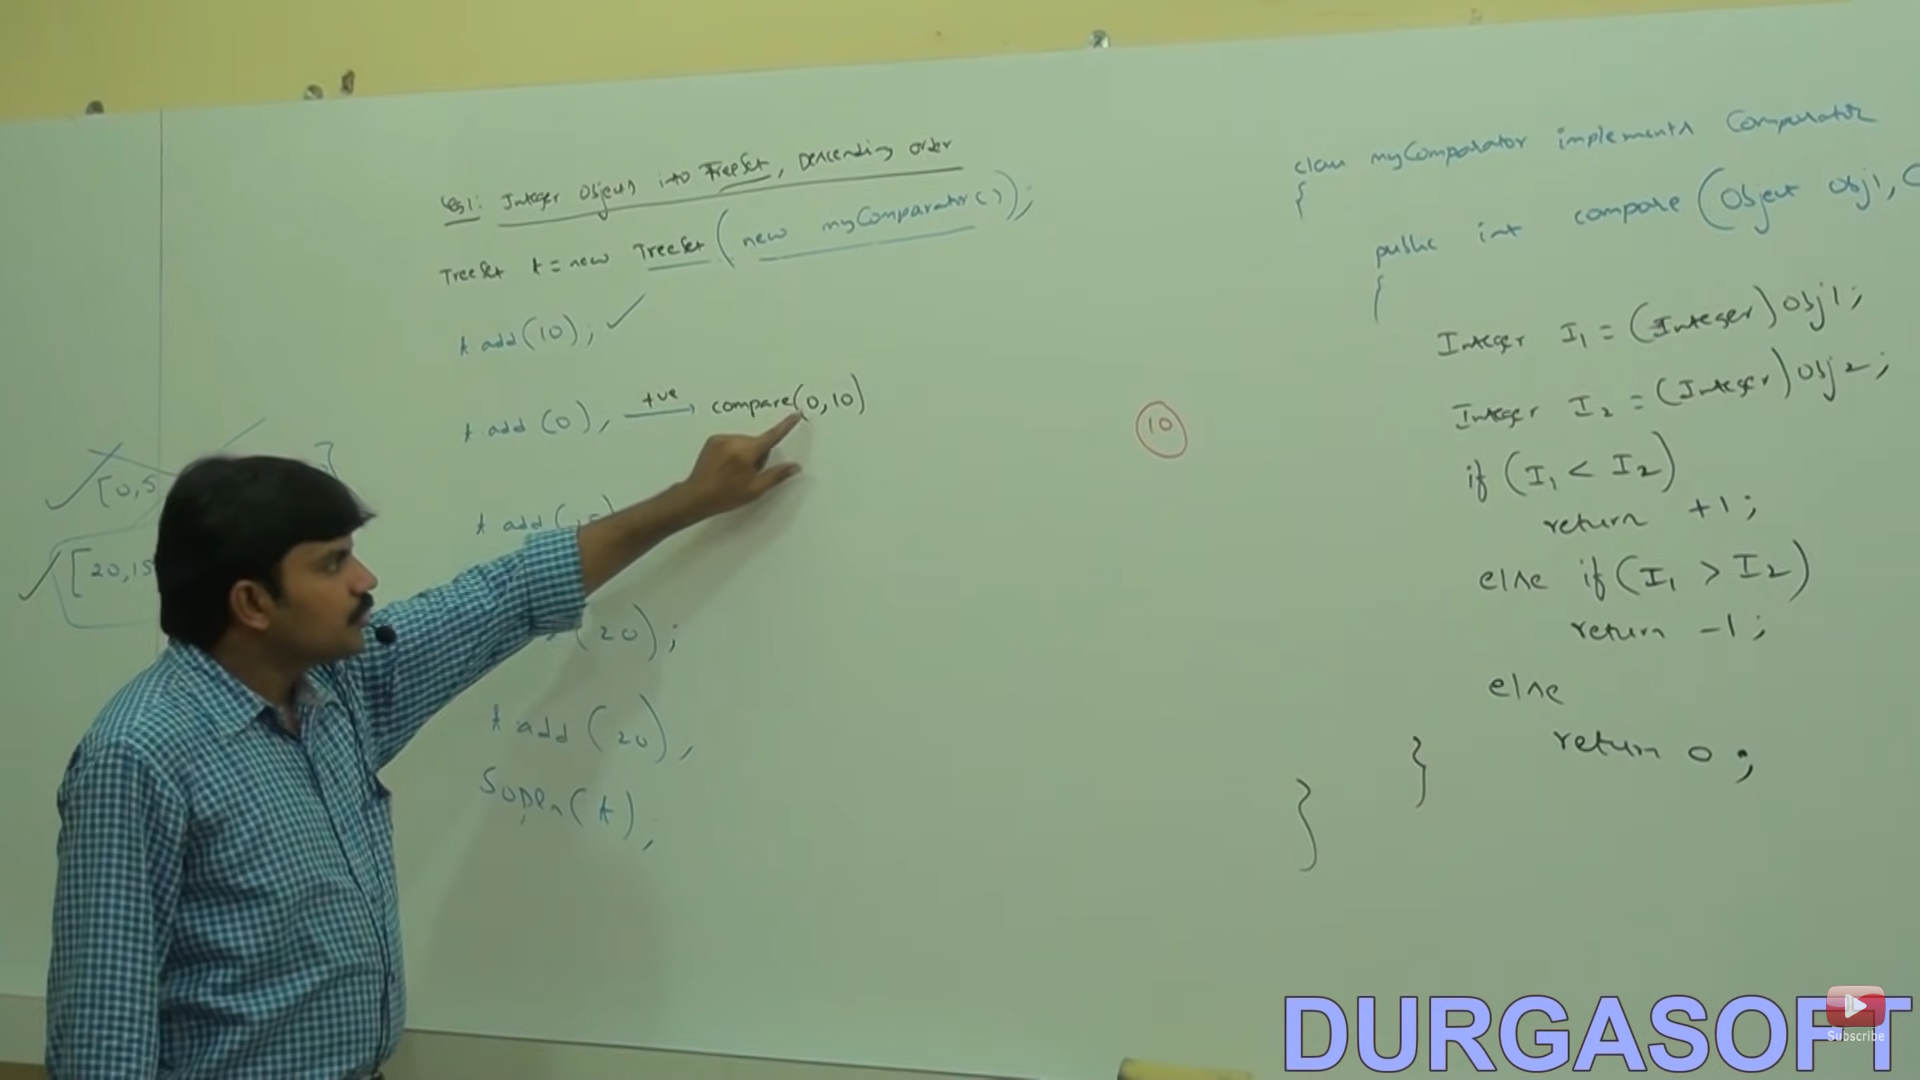 Integer Objects into TreeSet, Descending order
TreeSet t = new TreeSet (new myComparator());
t add(10);
t add(0), +ve compare(0,10)
[0,5
]
t add(
[20,15
(20);
t add(20),
Sopln(t),
10
class myComparator implements Comparator
{
public int compare (Object obj1,
{
Integer I1 = (Integer)obj1;
Integer I2 = (Integer)obj2;
if (I1 < I2)
return +1;
else if(I1 > I2)
return -1;
else
return 0;
}
}
DURGASOFT
Subscribe